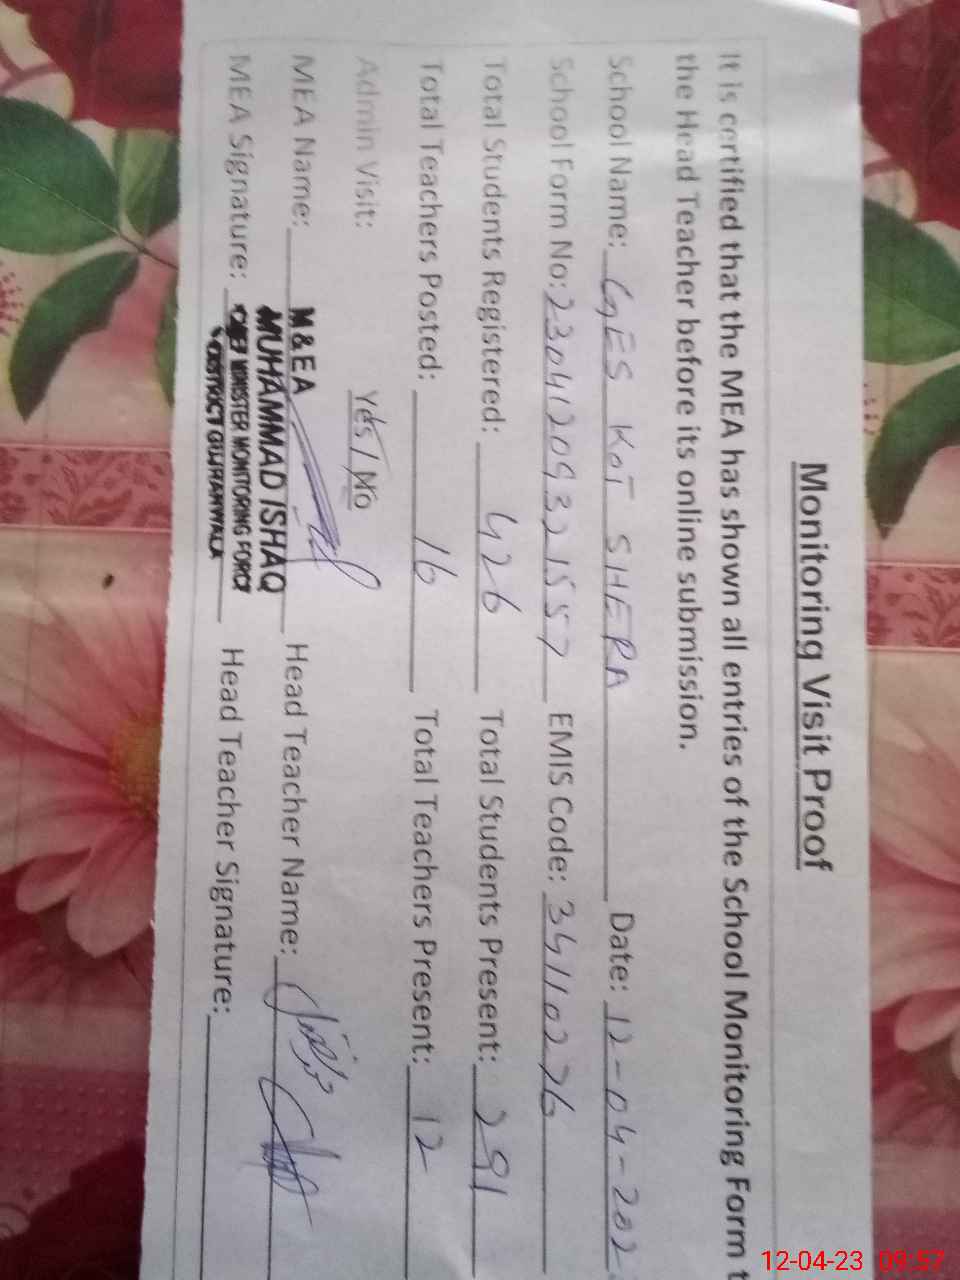 Monitoring Visit Proof
It is certified that the MEA has shown all entries of the School Monitoring Form t
the Head Teacher before its online submission.
School Name: GES KOT SHERA Date: 12-04-202
School Form No: 23041209321557 EMIS Code: 34110276
Total Students Registered: 426 Total Students Present: 291
Total Teachers Posted: 16 Total Teachers Present: 12
Admin Visit: Yes / No
MEA Name: M&EA MUHAMMAD ISHAQ Head Teacher Name:
MEA Signature: CHIEF MINISTER MONITORING FORCE Head Teacher Signature:
DISTRICT GUJRANWALA
12-04-23 09:57